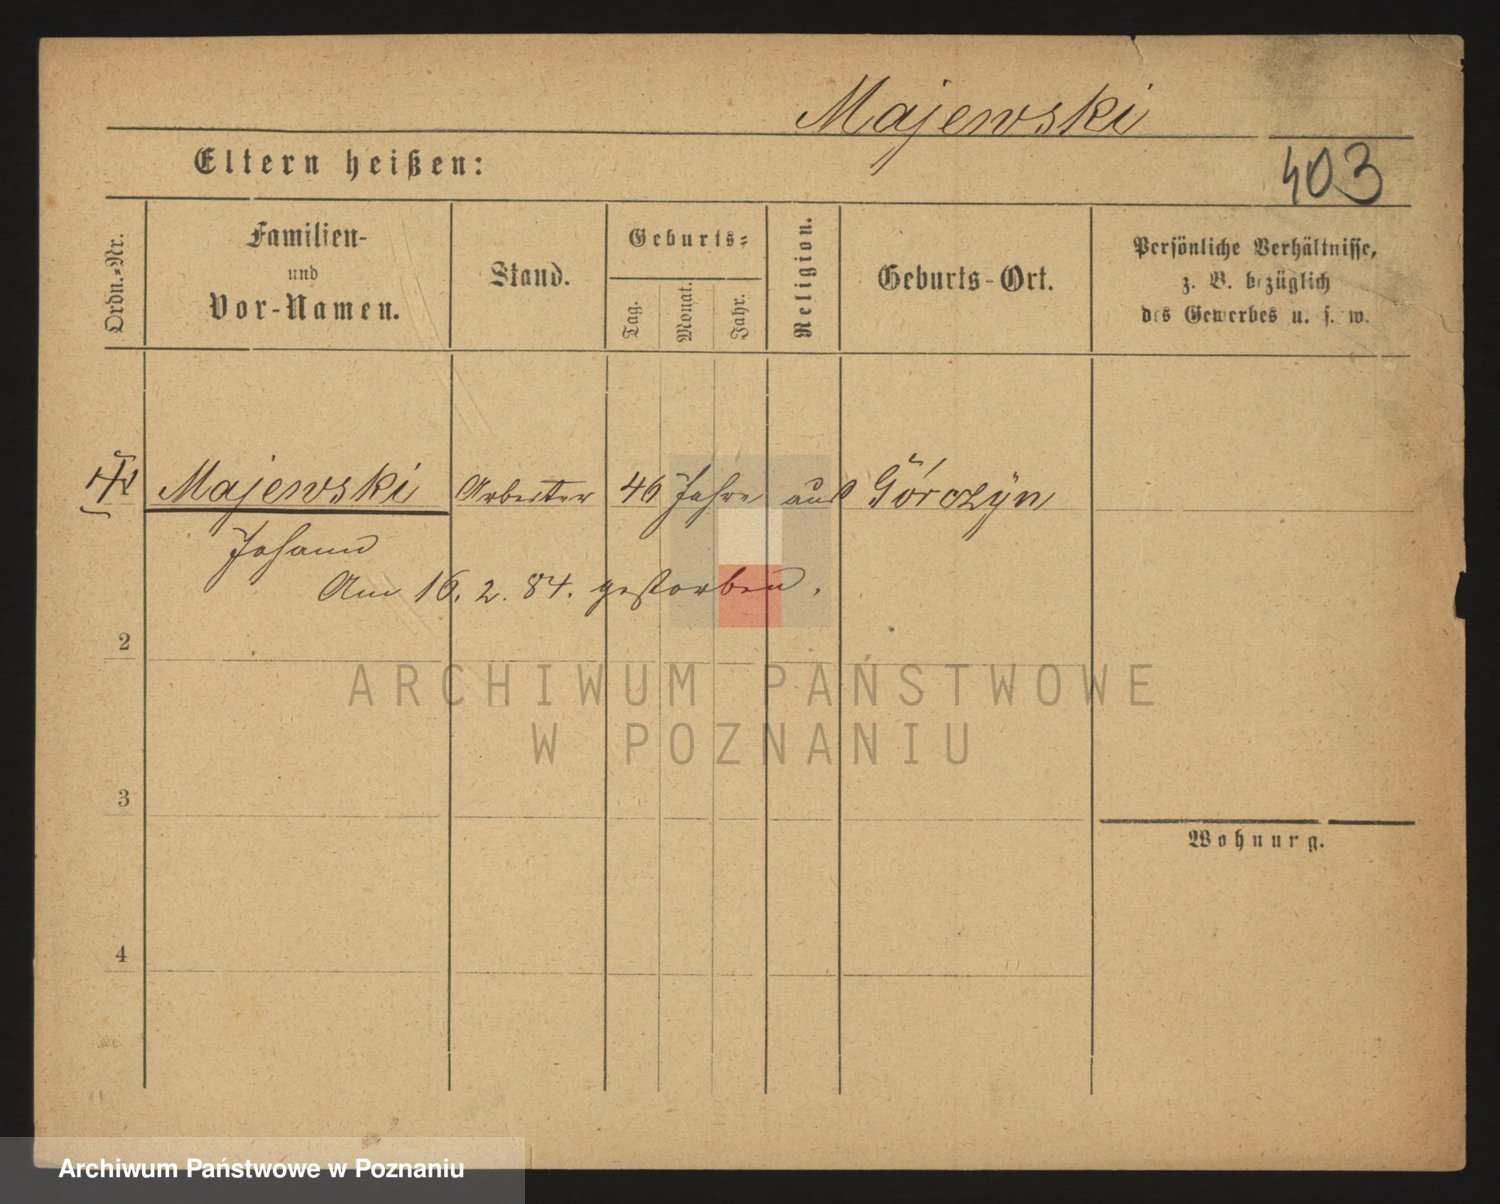 Majewski
Eltern heißen:
403
Ordn.-Nr.
Familien-
und
Vor-Namen.
Stand.
Geburts-
Tag.
Monat.
Jahr.
Religion.
Geburts-Ort.
Persönliche Verhältnisse,
z. B. bezüglich
des Gewerbes u. s. w.
Majewski Arbeiter 46 Jahre aus Górczyn
Johann
Am 16. 2. 84. gestorben.
2
ARCHIWUM PAŃSTWOWE
W POZNANIU
3
Wohnung.
4
Archiwum Państwowe w Poznaniu